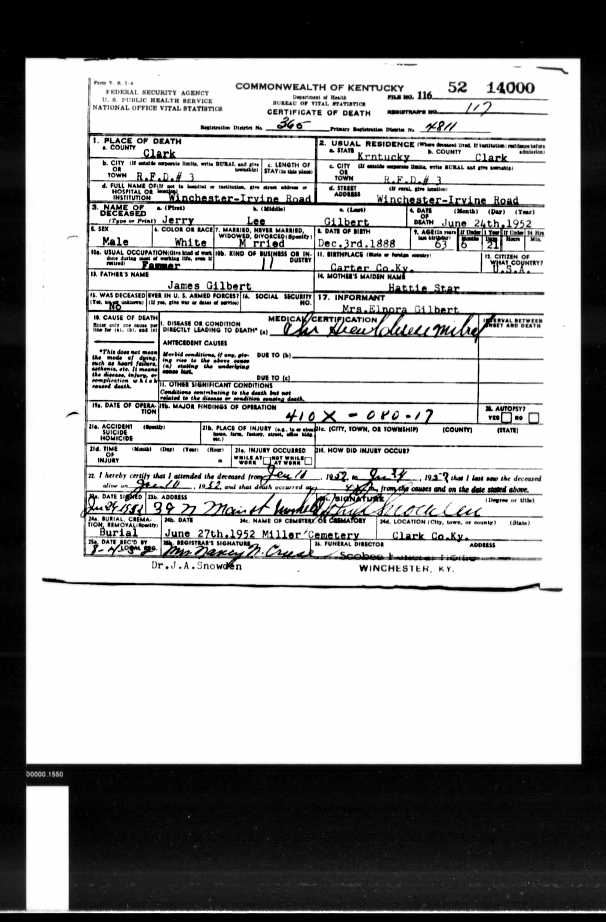 Form V. S. 1-A
FEDERAL SECURITY AGENCY
U. S. PUBLIC HEALTH SERVICE
NATIONAL OFFICE VITAL STATISTICS
COMMONWEALTH OF KENTUCKY
Department of Health
BUREAU OF VITAL STATISTICS
CERTIFICATE OF DEATH
FILE NO. 116 52 14000
REGISTRAR'S NO. 117
Registration District No. 365 Primary Registration District No. 4811
1. PLACE OF DEATH
a. COUNTY Clark
2. USUAL RESIDENCE (Where deceased lived. If institution: residence before admission)
a. STATE Krntucky b. COUNTY Clark
b. CITY (If outside corporate limits, write RURAL and give township) OR TOWN R.F.D.# 3
c. LENGTH OF STAY (in this place)
c. CITY (If outside corporate limits, write RURAL and give township) OR TOWN R.F.D.# 3
d. FULL NAME OF (If not in hospital or institution, give street address or location) HOSPITAL OR INSTITUTION Winchester-Irvine Road
d. STREET ADDRESS (If rural, give location) Winchester-Irvine Road
3. NAME OF DECEASED (Type or Print) a. (First) Jerry b. (Middle) Lee c. (Last) Gilbert
4. DATE OF DEATH (Month) (Day) (Year) June 24th,1952
5. SEX Male
6. COLOR OR RACE White
7. MARRIED, NEVER MARRIED, WIDOWED, DIVORCED (Specify) M rried
8. DATE OF BIRTH Dec.3rd.1888
9. AGE (In years last birthday) 63 If Under 1 Year Months 6 Days 21 If Under 24 Hrs Hours Min.
10a. USUAL OCCUPATION (Give kind of work done during most of working life, even if retired) Farmer
10b. KIND OF BUSINESS OR INDUSTRY
11. BIRTHPLACE (State or foreign country) Carter Co.Ky.
12. CITIZEN OF WHAT COUNTRY? U.S.A.
13. FATHER'S NAME James Gilbert
14. MOTHER'S MAIDEN NAME Hattie Star
15. WAS DECEASED EVER IN U. S. ARMED FORCES? (Yes, no, or unknown) (If yes, give war or dates of service) No
16. SOCIAL SECURITY NO.
17. INFORMANT Mrs.Elnora Gilbert
18. CAUSE OF DEATH
Enter only one cause per line for (a), (b), and (c)
MEDICAL CERTIFICATION
INTERVAL BETWEEN ONSET AND DEATH
I. DISEASE OR CONDITION DIRECTLY LEADING TO DEATH* (a)
*This does not mean the mode of dying, such as heart failure, asthenia, etc. It means the disease, injury, or complication which caused death.
ANTECEDENT CAUSES
Morbid conditions, if any, giving rise to the above cause (a) stating the underlying cause last.
DUE TO (b)
DUE TO (c)
II. OTHER SIGNIFICANT CONDITIONS
Conditions contributing to the death but not related to the disease or condition causing death.
19a. DATE OF OPERATION
19b. MAJOR FINDINGS OF OPERATION
410X - 080-17
20. AUTOPSY? YES NO
21a. ACCIDENT (Specify) SUICIDE HOMICIDE
21b. PLACE OF INJURY (e.g., in or about home, farm, factory, street, office bldg., etc.)
21c. (CITY, TOWN, OR TOWNSHIP) (COUNTY) (STATE)
21d. TIME OF INJURY (Month) (Day) (Year) (Hour) m
21e. INJURY OCCURRED WHILE AT WORK NOT WHILE AT WORK
21f. HOW DID INJURY OCCUR?
22. I hereby certify that I attended the deceased from 1952, to 195 that I last saw the deceased
alive on 1952 and that death occurred at m., from the causes and on the date stated above.
23a. DATE SIGNED
23b. ADDRESS 39 N Main St
23c. SIGNATURE (Degree or title)
24a. BURIAL, CREMATION, REMOVAL (Specify) Burial
24b. DATE June 27th.1952
24c. NAME OF CEMETERY OR CREMATORY Miller Cemetery
24d. LOCATION (City, town, or county) (State) Clark Co.Ky.
25a. DATE REC'D BY LOCAL REG.
25b. REGISTRAR'S SIGNATURE Mrs Nancy N. Cruse
26. FUNERAL DIRECTOR ADDRESS
Dr.J.A.Snowden
WINCHESTER, KY.
00000.1550